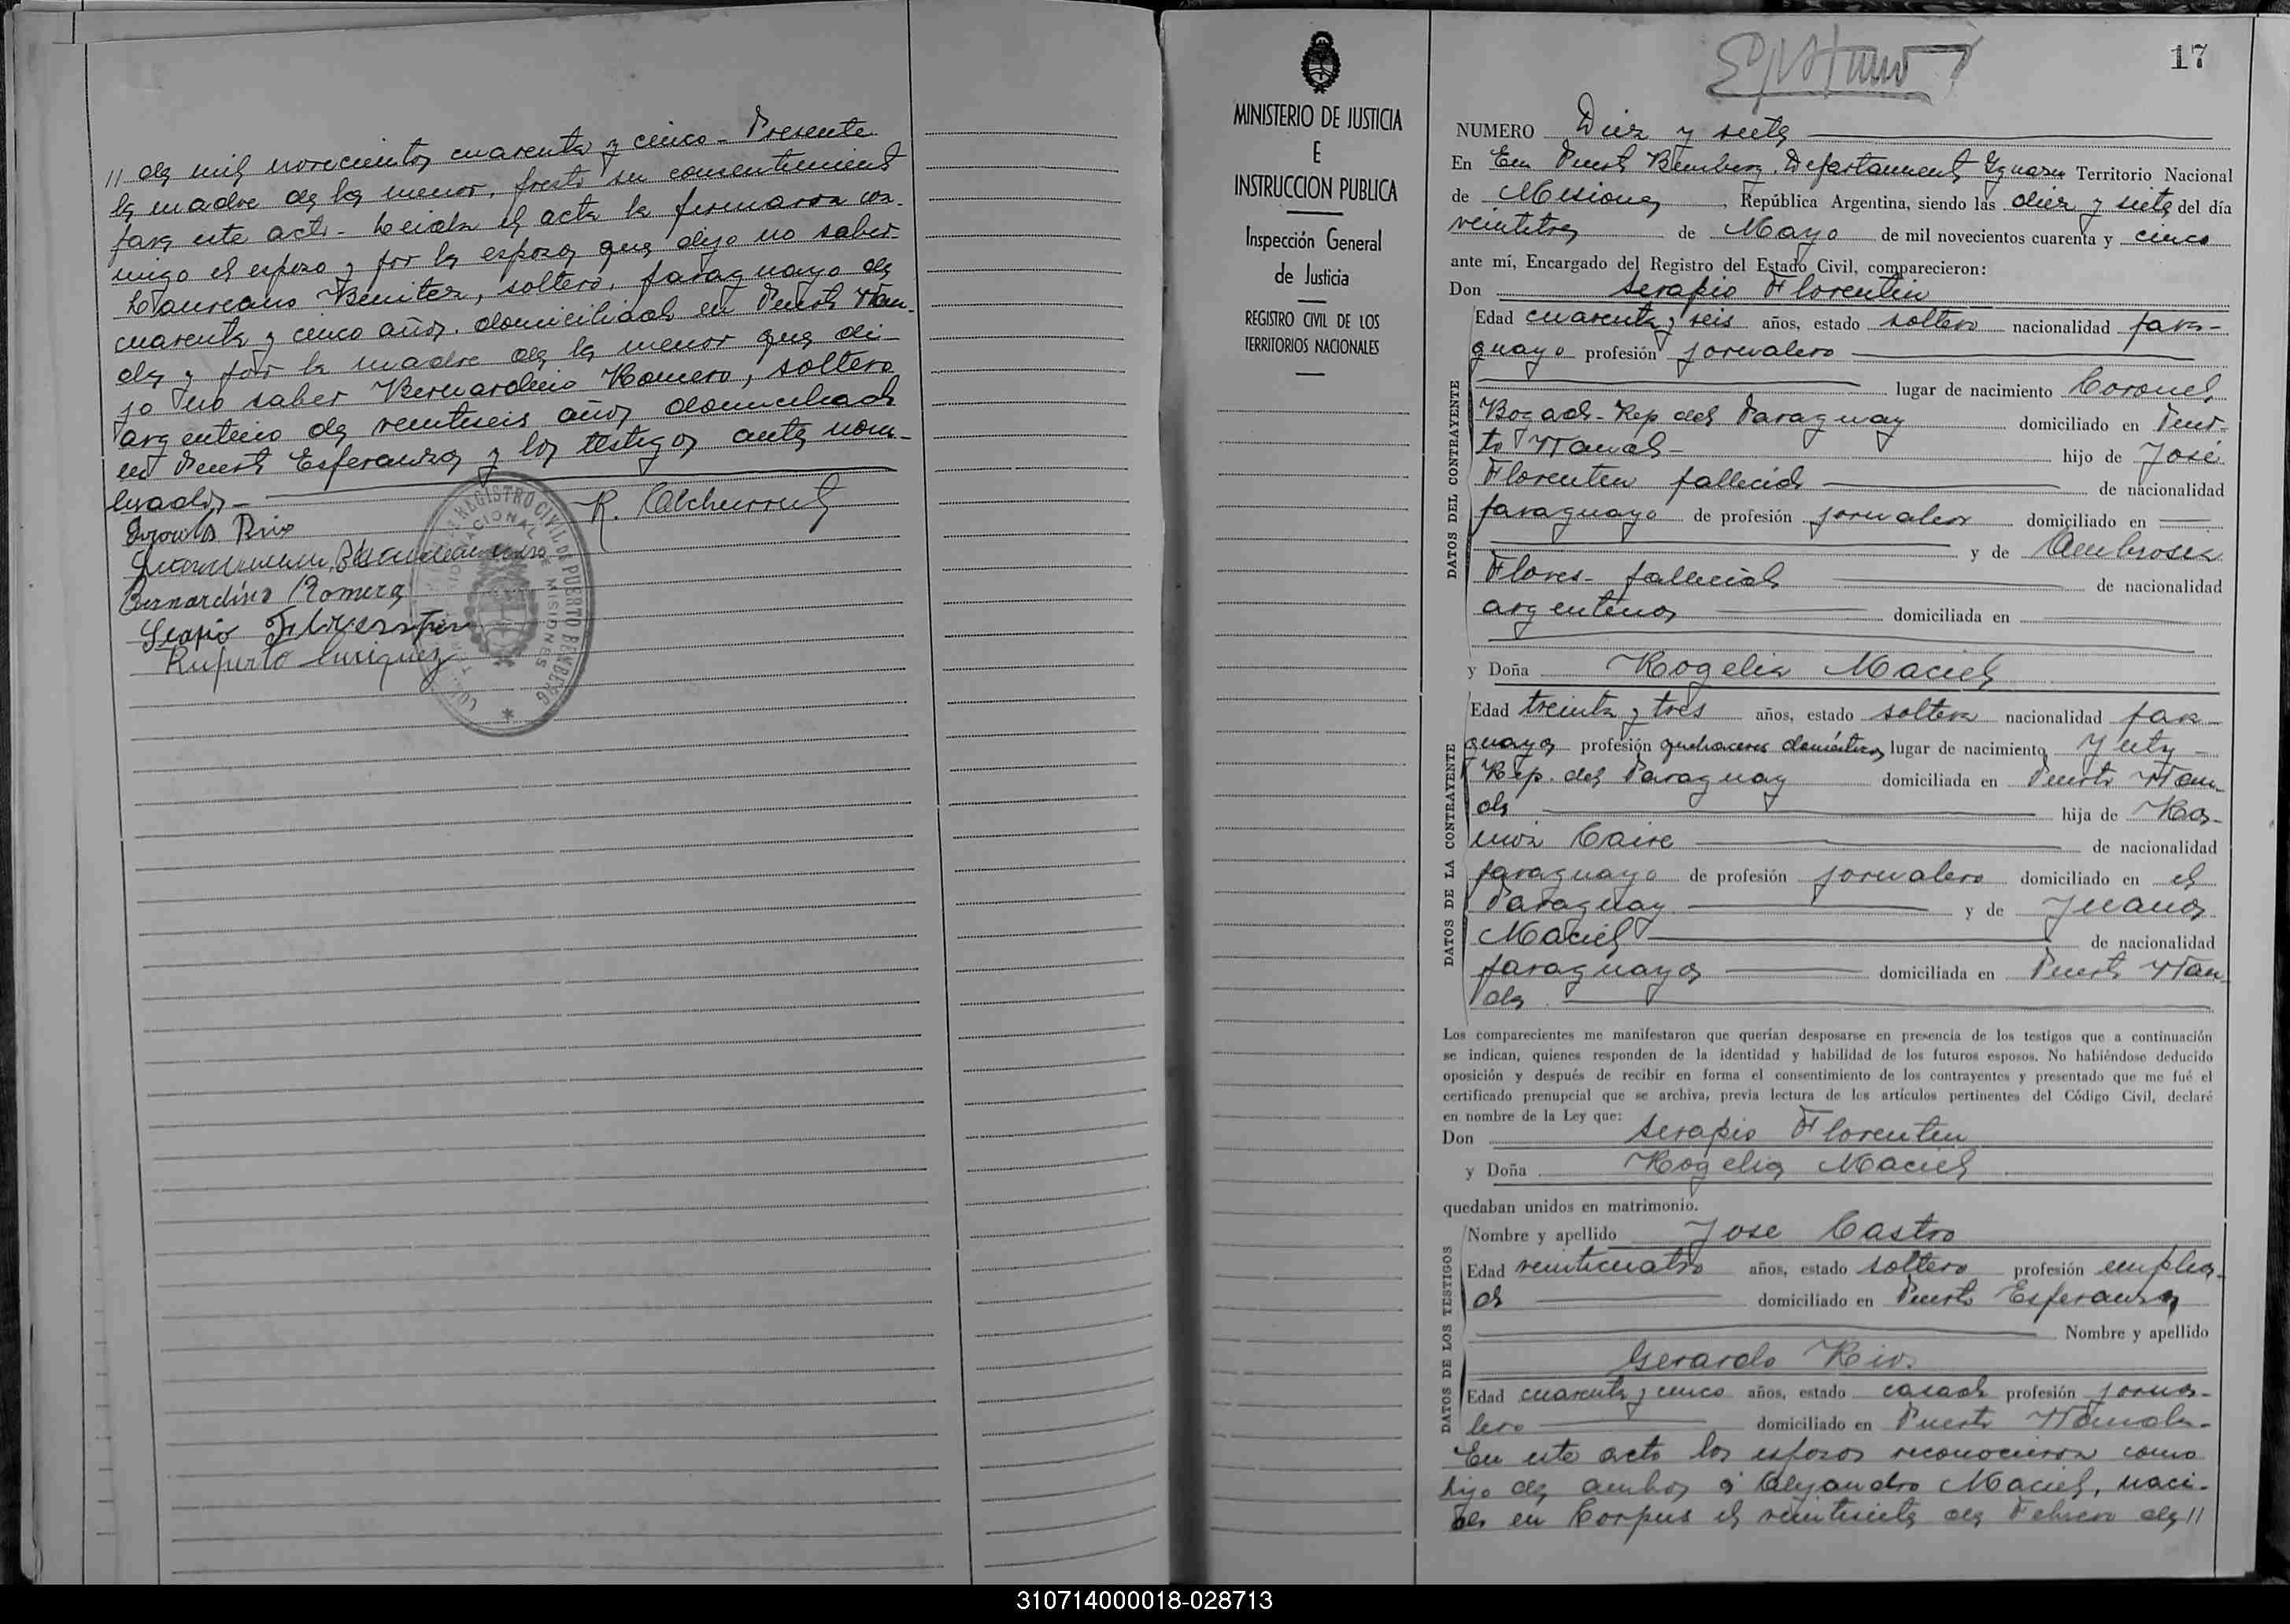 // de mil novecientos cuarenta y cinco - Presente
la madre de la menor, presto su consentimiento
para este acto - Leida el acta la firmaron con-
migo el esposo y por la esposa que dijo no saber
Laureano Benitez, soltero, paraguayo de
cuarenta y cinco años, domiciliado en Puerto Wan-
da y por la madre de la menor que di-
jo no saber Bernardino Romero, soltero
argentino de veintiseis años domiciliado
en Puerto Esperanza y los testigos antes nom-
brados -
Bernardino Romero
Serapio Florentin
Ruperto Enriquez
REGISTRO CIVIL DE PUERTO BEMBERG
MISIONES
MINISTERIO DE JUSTICIA
E
INSTRUCCION PUBLICA
Inspección General
de Justicia
REGISTRO CIVIL DE LOS
TERRITORIOS NACIONALES
17
NUMERO Diez y siete
En En Puerto Bemberg. Departamento Iguazu Territorio Nacional
de Misiones, República Argentina, siendo las diez y siete del día
veintitres de Mayo de mil novecientos cuarenta y cinco
ante mí, Encargado del Registro del Estado Civil, comparecieron:
Don Serapio Florentin
DATOS DEL CONTRAYENTE
Edad cuarenta y seis años, estado soltero nacionalidad para-
guayo profesión jornalero
lugar de nacimiento Coronel
Bogado - Rep del Paraguay domiciliado en Puer-
to Wanda - hijo de José
Florentin fallecido de nacionalidad
paraguayo de profesión jornalero domiciliado en
y de Ambrosia
Flores - fallecida de nacionalidad
argentina domiciliada en
y Doña Rogelia Maciel
DATOS DE LA CONTRAYENTE
Edad treinta y tres años, estado soltera nacionalidad para-
guaya profesión quehaceres domésticos lugar de nacimiento Yuty -
Rep. del Paraguay domiciliada en Puerto Wan-
da hija de Ra-
mon Caire de nacionalidad
paraguayo de profesión jornalero domiciliado en el
Paraguay y de Juana
Maciel de nacionalidad
paraguaya domiciliada en Puerto Wan-
da
Los comparecientes me manifestaron que querían desposarse en presencia de los testigos que a continuación
se indican, quienes responden de la identidad y habilidad de los futuros esposos. No habiéndose deducido
oposición y después de recibir en forma el consentimiento de los contrayentes y presentado que me fué el
certificado prenupcial que se archiva, previa lectura de los artículos pertinentes del Código Civil, declaré
en nombre de la Ley que:
Don Serapio Florentin
y Doña Rogelia Maciel
quedaban unidos en matrimonio.
DATOS DE LOS TESTIGOS
Nombre y apellido Jose Castro
Edad veinticuatro años, estado soltero profesión emplea-
do domiciliado en Puerto Esperanza
Nombre y apellido
Gerardo Rios
Edad cuarenta y cinco años, estado casado profesión jorna-
lero domiciliado en Puerto Wanda -
En este acto los esposos reconocieron como
hijo de ambos a Alejandro Maciel, naci-
do en Corpus el veintisiete de Febrero de //
310714000018-028713